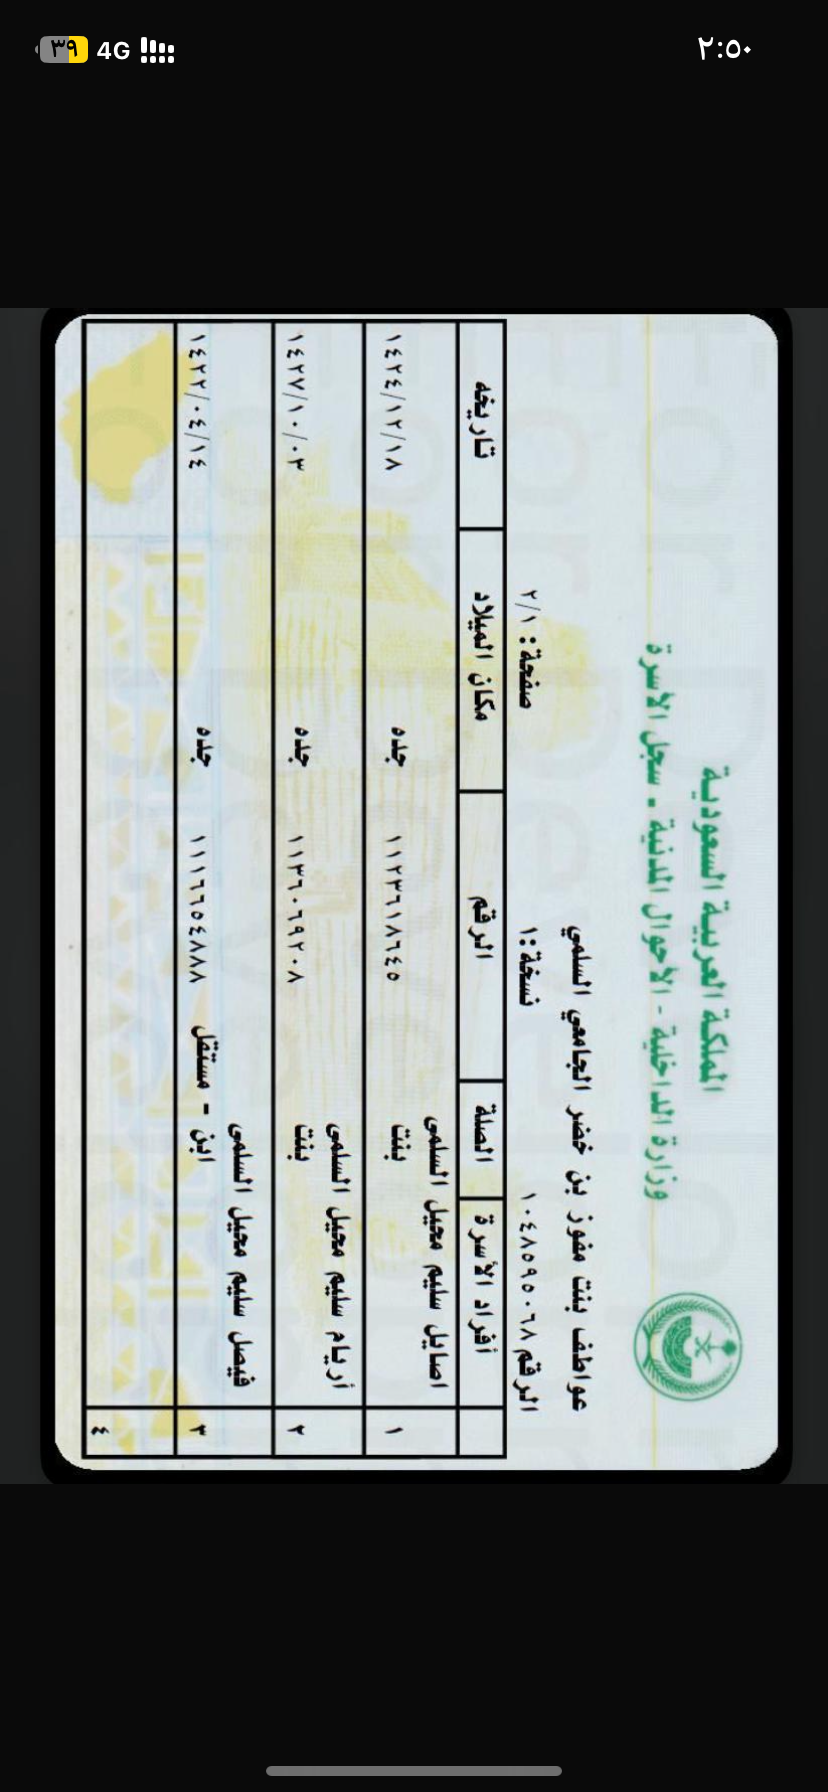 ٢:٥٠
4G
٣٩
المملكة العربية السعودية
وزارة الداخلية - الأحوال المدنية - سجل الأسرة
عواطف بنت مفوز بن خضر الجامعي السلمي
الرقم ١٠٤٨٥٩٥٠٦٨ نسخة: ١ صفحة: ٢/١
أفراد الأسرة الصلة الرقم مكان الميلاد تاريخه
١ اصايل سليم محيل السلمى
بنت ١١٢٣٦١٨٦٤٥ جده ١٤٢٤/١٢/١٨
٢ أريام سليم محيل السلمى
بنت ١١٣٦٠٦٩٢٠٨ جده ١٤٢٧/١٠/٠٣
٣ فيصل سليم محيل السلمى
ابن - مستقل ١١١٦٦٥٤٨٨٨ جده ١٤٢٢/٠٤/١٤
٤